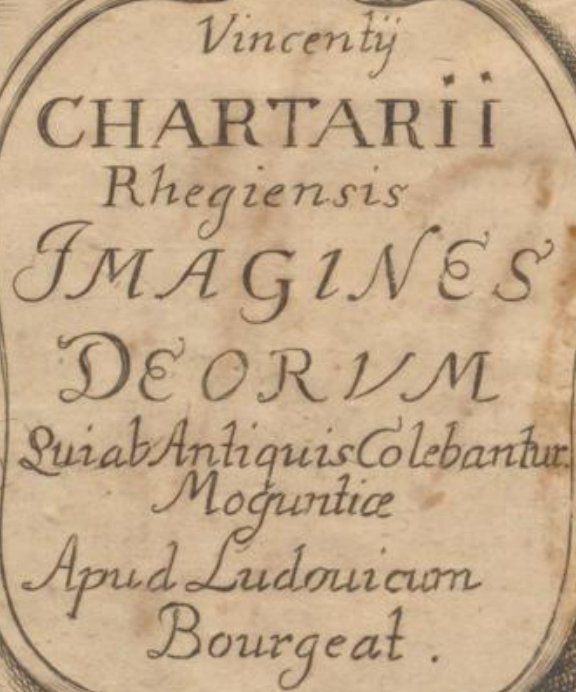 Vincentij
CHARTARII
Rhegiensis
IMAGINES
DEORVM
Qui ab Antiquis Colebantur.
Moguntiæ
Apud Ludouicum
Bourgeat.